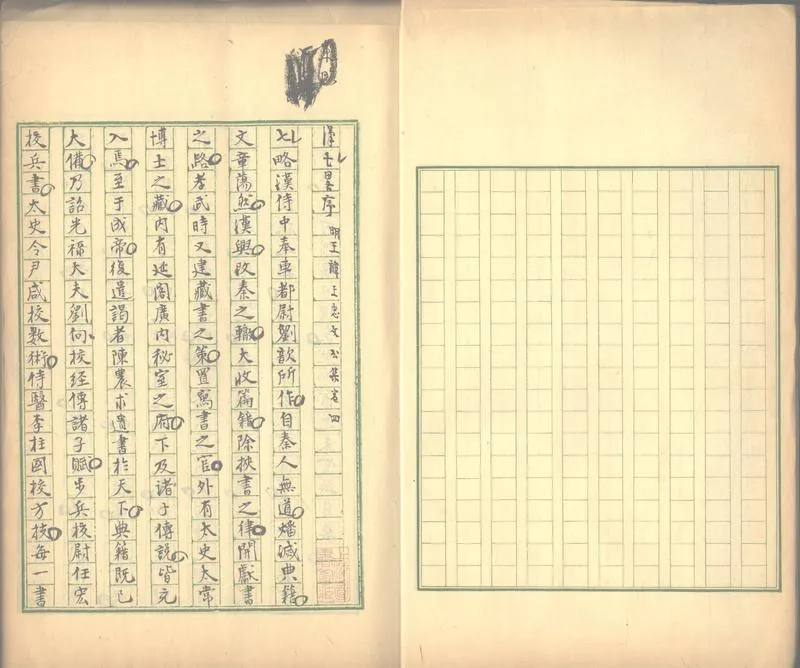 漢七畧序 明王禕王忠文公集卷四
七略漢侍中奉車都尉劉歆所作自秦人無道燔滅典籍
文章蕩然漢興改秦之轍大收篇籍除挾書之律開獻書
之路孝武時又建藏書之策置寫書之官外有太史太常
博士之藏內有延閣廣內秘室之府下及諸子傳說皆充
入焉至于成帝復遣謁者陳農求遺書於天下典籍既已
大備乃詔光祿大夫劉向校經傳諸子賦步兵校尉任宏
校兵書太史令尹咸校數術侍醫李柱國校方技每一書